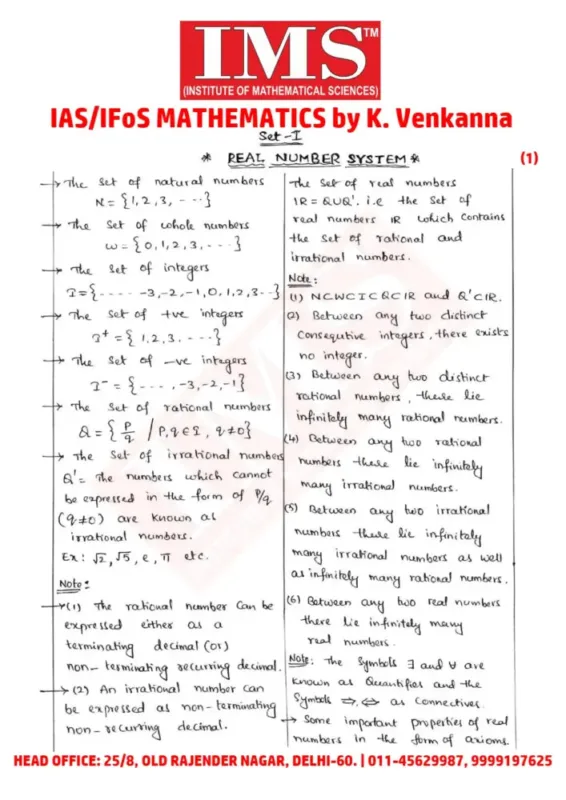 IMS™
(INSTITUTE OF MATHEMATICAL SCIENCES)
IAS/IFoS MATHEMATICS by K. Venkanna
Set-I
* REAL NUMBER SYSTEM *
(1)
→ The Set of natural numbers
N = {1, 2, 3, ----}
→ The Set of whole numbers
W = {0, 1, 2, 3, ----}
→ The Set of integers
I = {---- -3, -2, -1, 0, 1, 2, 3 --}
→ The Set of +ve integers
I⁺ = {1, 2, 3, ----}
→ The Set of -ve integers
I⁻ = {----, -3, -2, -1}
→ The Set of rational numbers
Q = {p/q / p, q ∈ I, q ≠ 0}
→ The Set of irrational numbers
Q' = The numbers which cannot
be expressed in the form of P/q
(q ≠ 0) are known as
irrational numbers.
Ex: √2, √5, e, π etc.
Note:
→ (1) The rational number can be
expressed either as a
terminating decimal (or)
non-terminating recurring decimal.
→ (2) An irrational number can
be expressed as non-terminating
non-recurring decimal.
The set of real numbers
IR = Q∪Q'. i.e the set of
real numbers IR which contains
the set of rational and
irrational numbers.
Note:
(1) N⊂W⊂I⊂Q⊂IR and Q'⊂IR.
(2) Between any two distinct
Consequtive integers, there exists
no integer.
(3) Between any two distinct
rational numbers, there lie
infinitely many rational numbers.
(4) Between any two rational
numbers there lie infinitely
many irrational numbers.
(5) Between any two irrational
numbers there lie infinitely
many irrational numbers as well
as infinitely many rational numbers.
(6) Between any two real numbers
there lie infinitely many
real numbers.
Note: The Symbols ∃ and ∀ are
known as Quantifies and the
Symbols ⇒, ⇔ as connectives.
→ Some important properties of real
numbers in the form of axioms.
HEAD OFFICE: 25/8, OLD RAJENDER NAGAR, DELHI-60. | 011-45629987, 9999197625